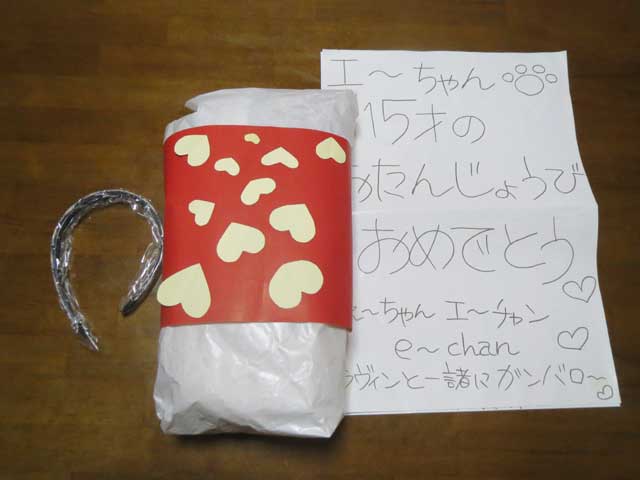 エ〜ちゃん
15才の
おたんじょうび
おめでとう
え〜ちゃん エーチャン
e〜chan
ラヴィンと一諸にガンバロ〜